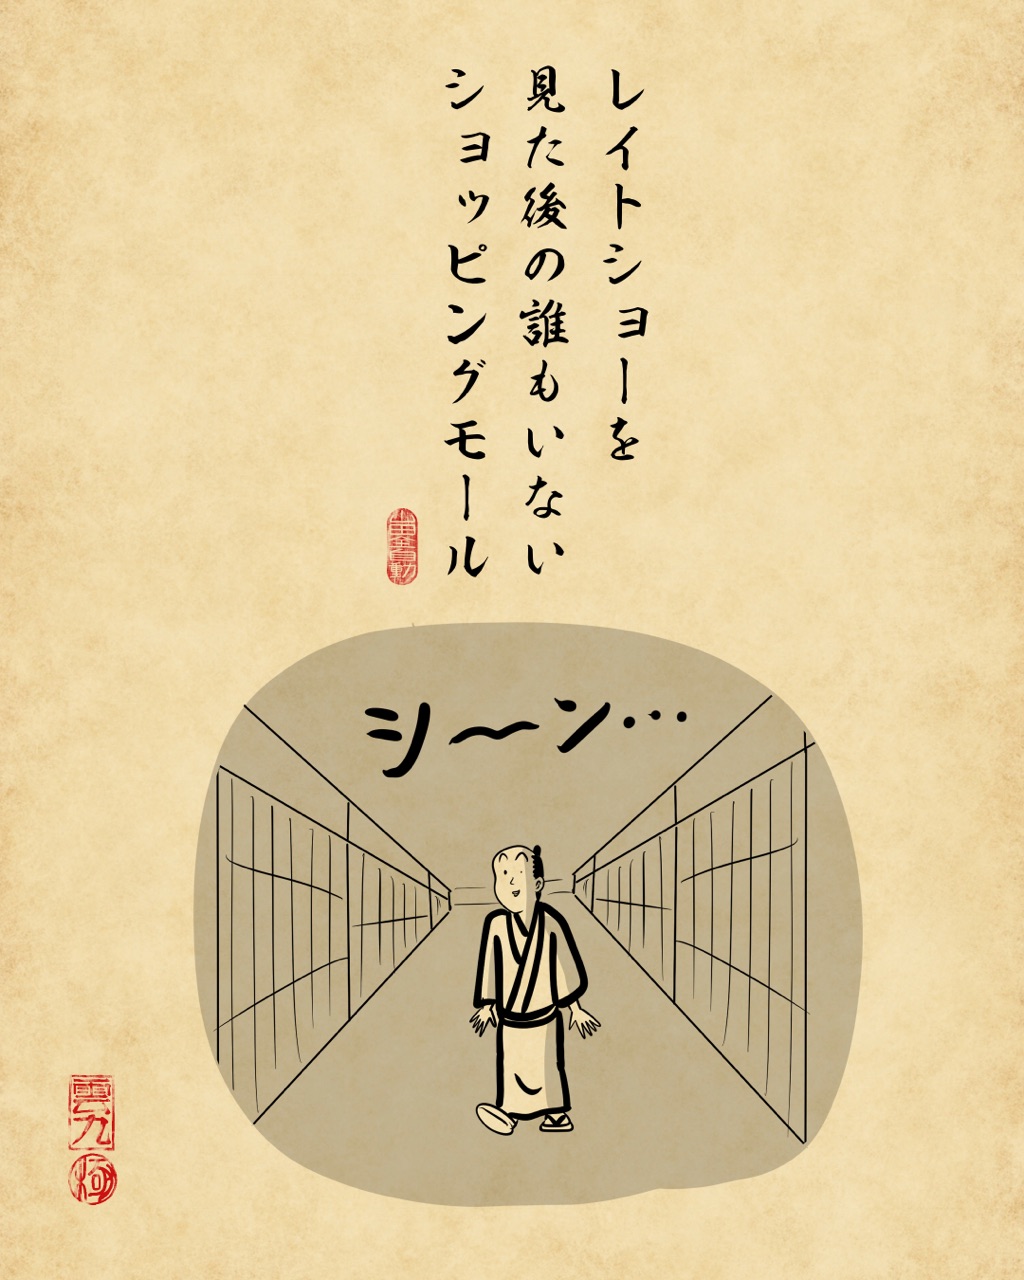 レイトショーを
見た後の誰もいない
ショッピングモール
シ〜ン…
雲九
極